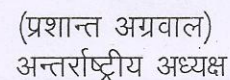 (प्रशान्त अग्रवाल)
अन्तर्राष्ट्रीय अध्यक्ष